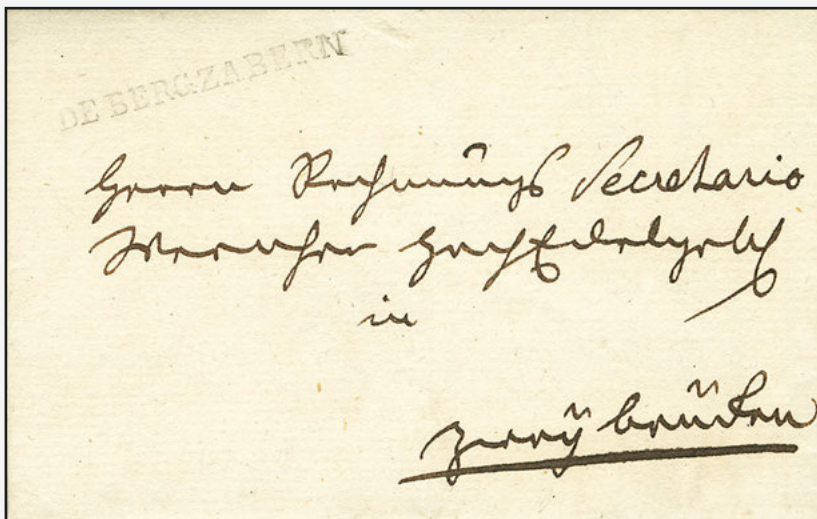 DE BERGZABERN
Herrn Rechnungs Secretario
Wernher HochEdelgeb
in
Zweÿbrücken